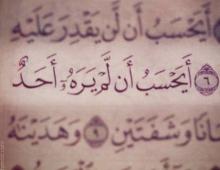 أَيَحْسَبُ أَن لَّن يَقْدِرَ عَلَيْهِ
٦ أَيَحْسَبُ أَن لَّمْ يَرَهُۥٓ أَحَدٌ
وَشَفَتَيْنِ ٩ وَهَدَيْنَٰهُ